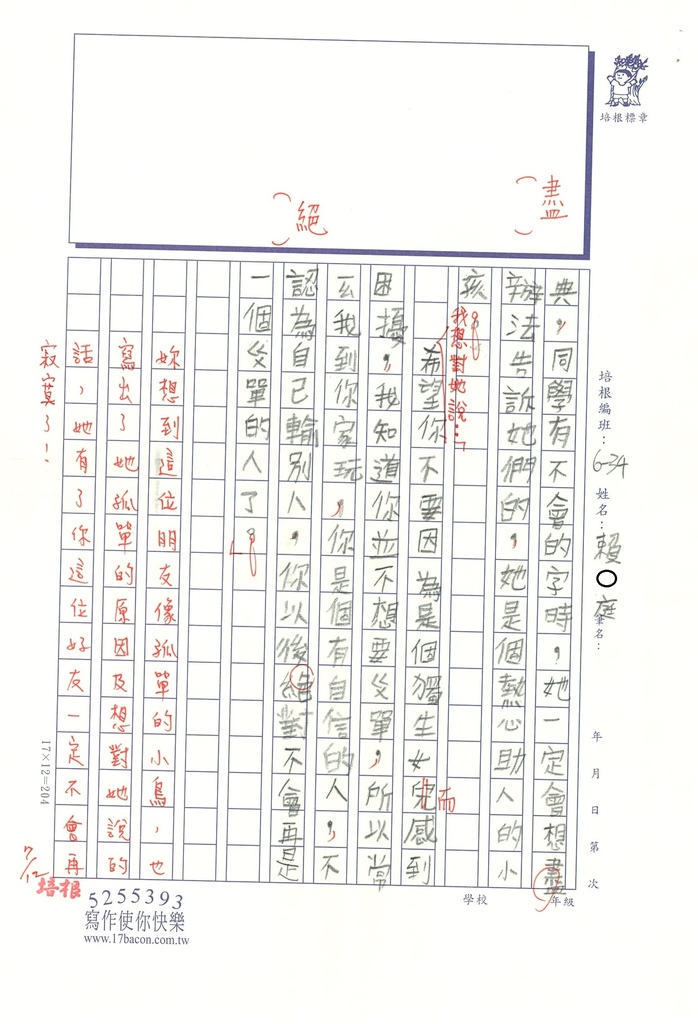 盡
絕
培根標章
培根編班：6-34 姓名：賴〇庭 筆名：
年 月 日 第 次
學校 年級
典，同學有不會的字時，她一定會想盡
辦法告訴她們的，她是個熱心助人的小
孩。
我想對她說：「
希望你不要因為是個獨生女完感到
而
困擾，我知道你並不想要孤單，所以常
去我到你家玩，你是個有自信的人，不
認為自己輸別人，你以後絕對不會再是
一個孤單的人了。」
妳想到這位朋友像孤單的小鳥，也
寫出了她孤單的原因及想對她說的
話，她有了你這位好友一定不會再
寂寞了！
7/12
17×12=204
培根
5255393
寫作使你快樂
www.17bacon.com.tw